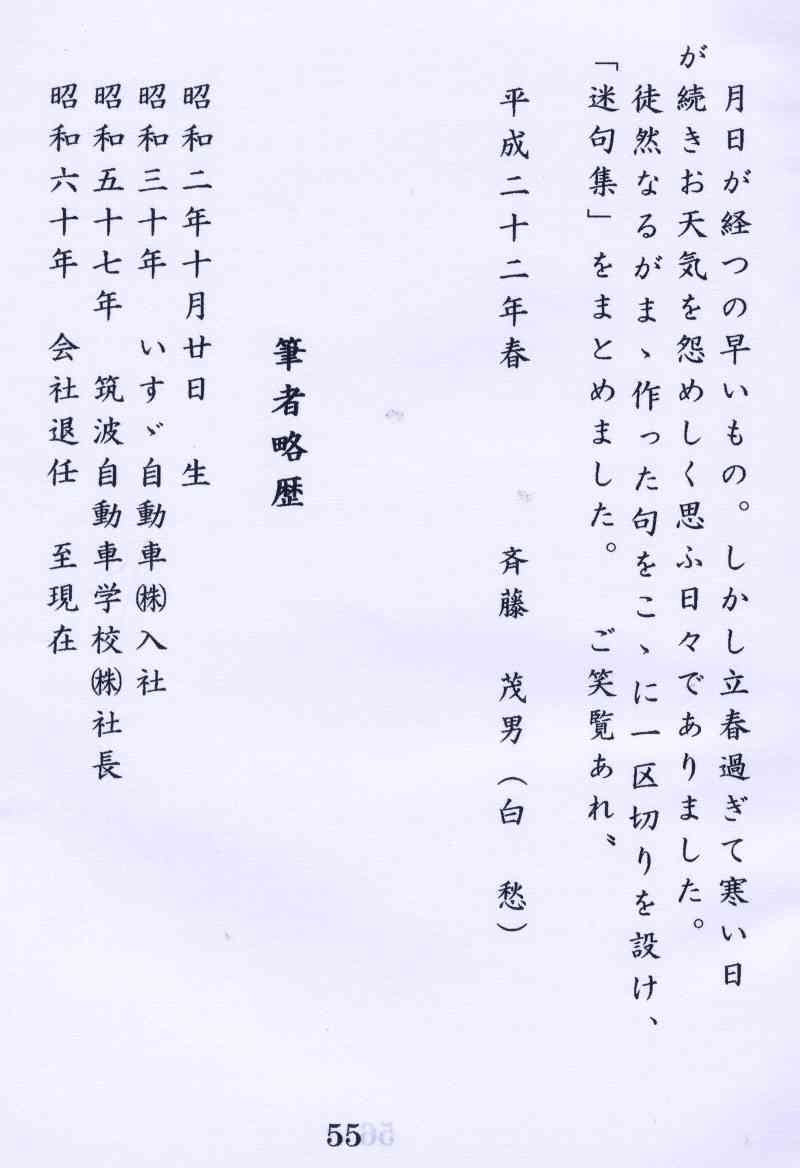 月日が経つの早いもの。しかし立春過ぎて寒い日
が続きお天気を怨めしく思ふ日々でありました。
徒然なるがまゝ作った句をこゝに一区切りを設け、
「迷句集」をまとめました。　ご笑覧あれ〻
平成二十二年春　　　　斉藤　茂男（白　愁）
筆者略歴
昭和二年十月廿日　生
昭和三十年　いすゞ自動車㈱入社
昭和五十七年　筑波自動車学校㈱社長
昭和六十年　会社退任　至現在
55